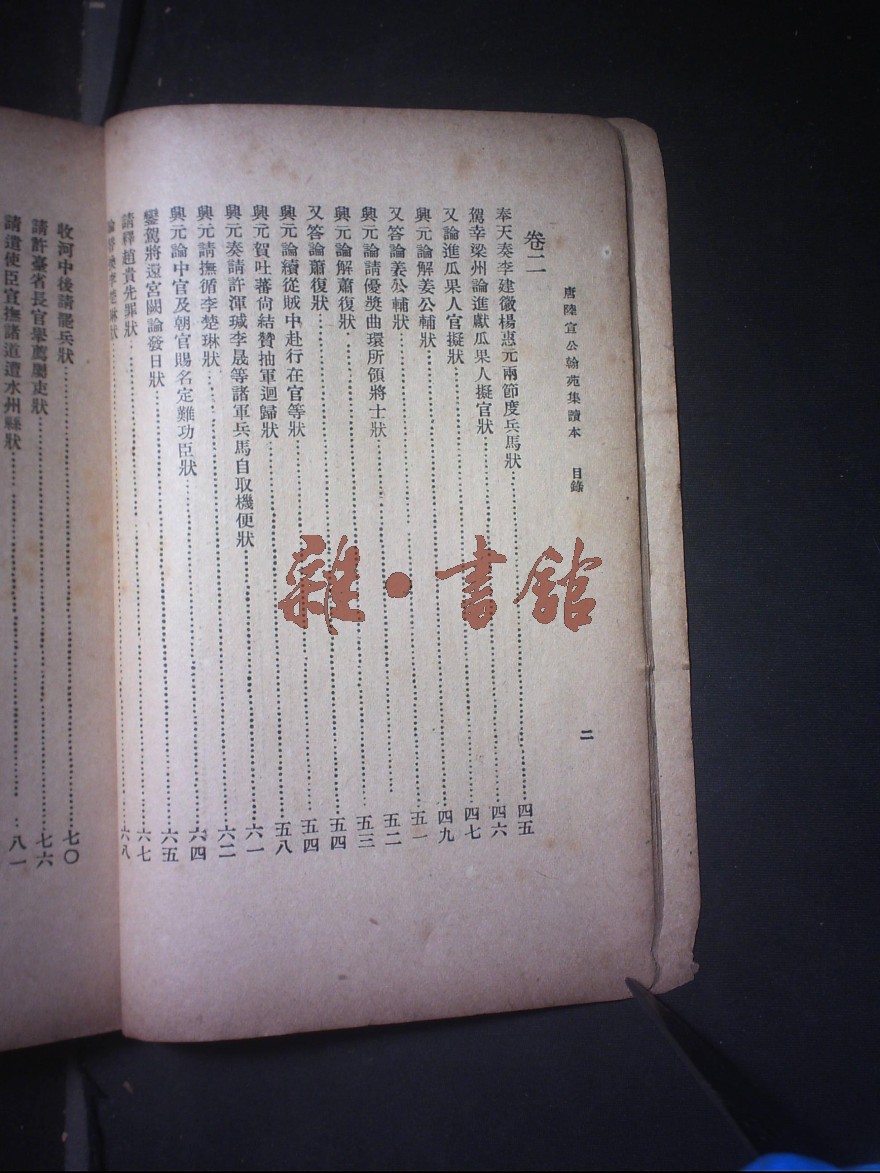 唐陸宣公翰苑集讀本 目錄 二
卷二
奉天奏李建徽楊惠元兩節度兵馬狀……四五
駕幸梁州論進獻瓜果人擬官狀……四六
又論進瓜果人官擬狀……四七
興元論解姜公輔狀……四九
又答論姜公輔狀……五一
興元論請優獎曲環所領將士狀……五二
興元論解蕭復狀……五三
又答論蕭復狀……五四
興元論續從賊中赴行在官等狀……五四
興元賀吐蕃尚結贊抽軍迴歸狀……五八
興元奏請許渾瑊李晟等諸軍兵馬自取機便狀……六一
興元請撫循李楚琳狀……六二
興元論中官及朝官賜名定難功臣狀……六四
鑾駕將還宮闕論發日狀……六五
請釋趙貴先罪狀……六七
論替換李楚琳狀……六八
收河中後請罷兵狀……七〇
請許臺省長官舉薦屬吏狀……七六
請遣使臣宣撫諸道遭水州縣狀……八一
雜·書館